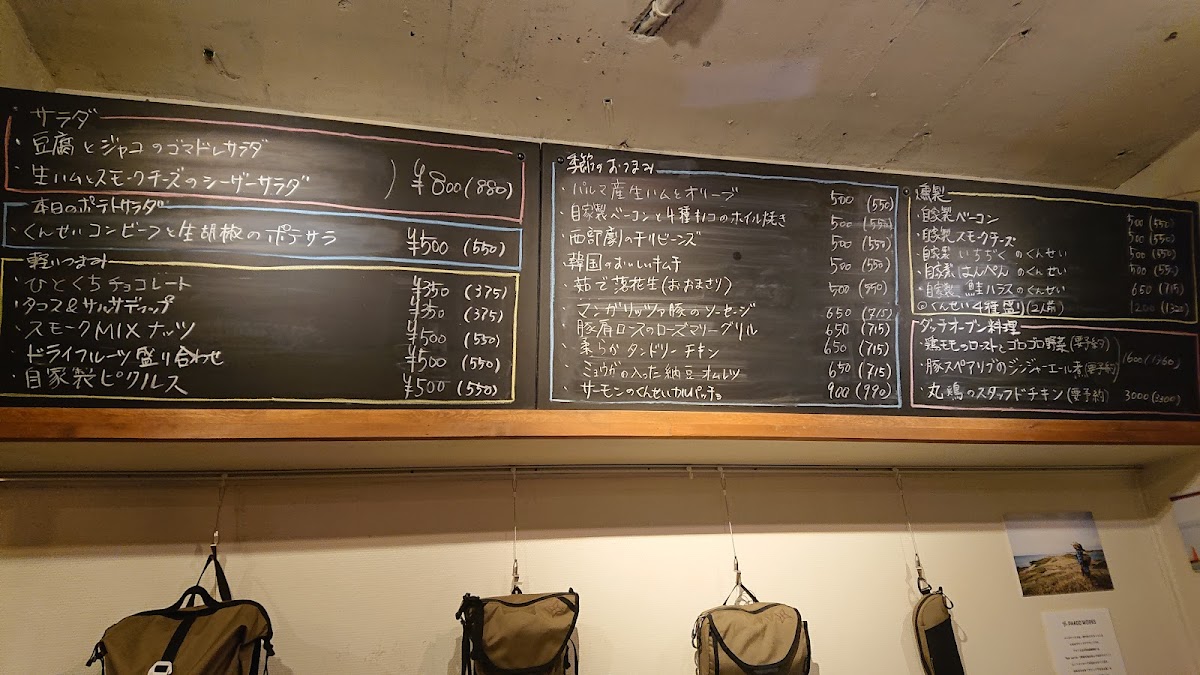 サラダ
・豆腐とジャコのゴマドレサラダ
・生ハムとスモークチーズのシーザーサラダ ) ¥800(880)
本日のポテトサラダ
・くんせいコンビーフと生胡椒のポテサラ ¥500(550)
軽いつまみ
・ひとくちチョコレート ¥350(375)
・タコス&サルサディップ ¥350(375)
・スモークMIXナッツ ¥500(550)
・ドライフルーツ盛り合わせ ¥500(550)
・自家製ピクルス ¥500(550)
季節のおつまみ
・パルマ産生ハムとオリーブ 500(550)
・自家製ベーコンと4種キノコのホイル焼き 500(550)
・西部劇のチリビーンズ 500(550)
・韓国のおいしいキムチ 500(550)
・茹で落花生(おおまさり) 500(550)
・マンガリッツァ豚のソーセージ 650(715)
・豚肩ロースのローズマリーグリル 650(715)
・柔らかタンドリーチキン 650(715)
・ミョウガの入った納豆オムレツ 650(715)
・サーモンのくんせいカルパッチョ 900(990)
燻製
・自家製ベーコン 500(550)
・自家製スモークチーズ 500(550)
・自家製いちぢくのくんせい 500(550)
・自家製はんぺんのくんせい 500(550)
・自家製鮭ハラスのくんせい 650(715)
◎くんせい4種盛り(2人前) 1200(1320)
ダッチオーブン料理
・鶏モモのローストとゴロゴロ野菜(要予約)
・豚スペアリブのジンジャーエール煮(要予約) 1600(1760)
・丸鶏のスタッフドチキン(要予約) 3000(3300)